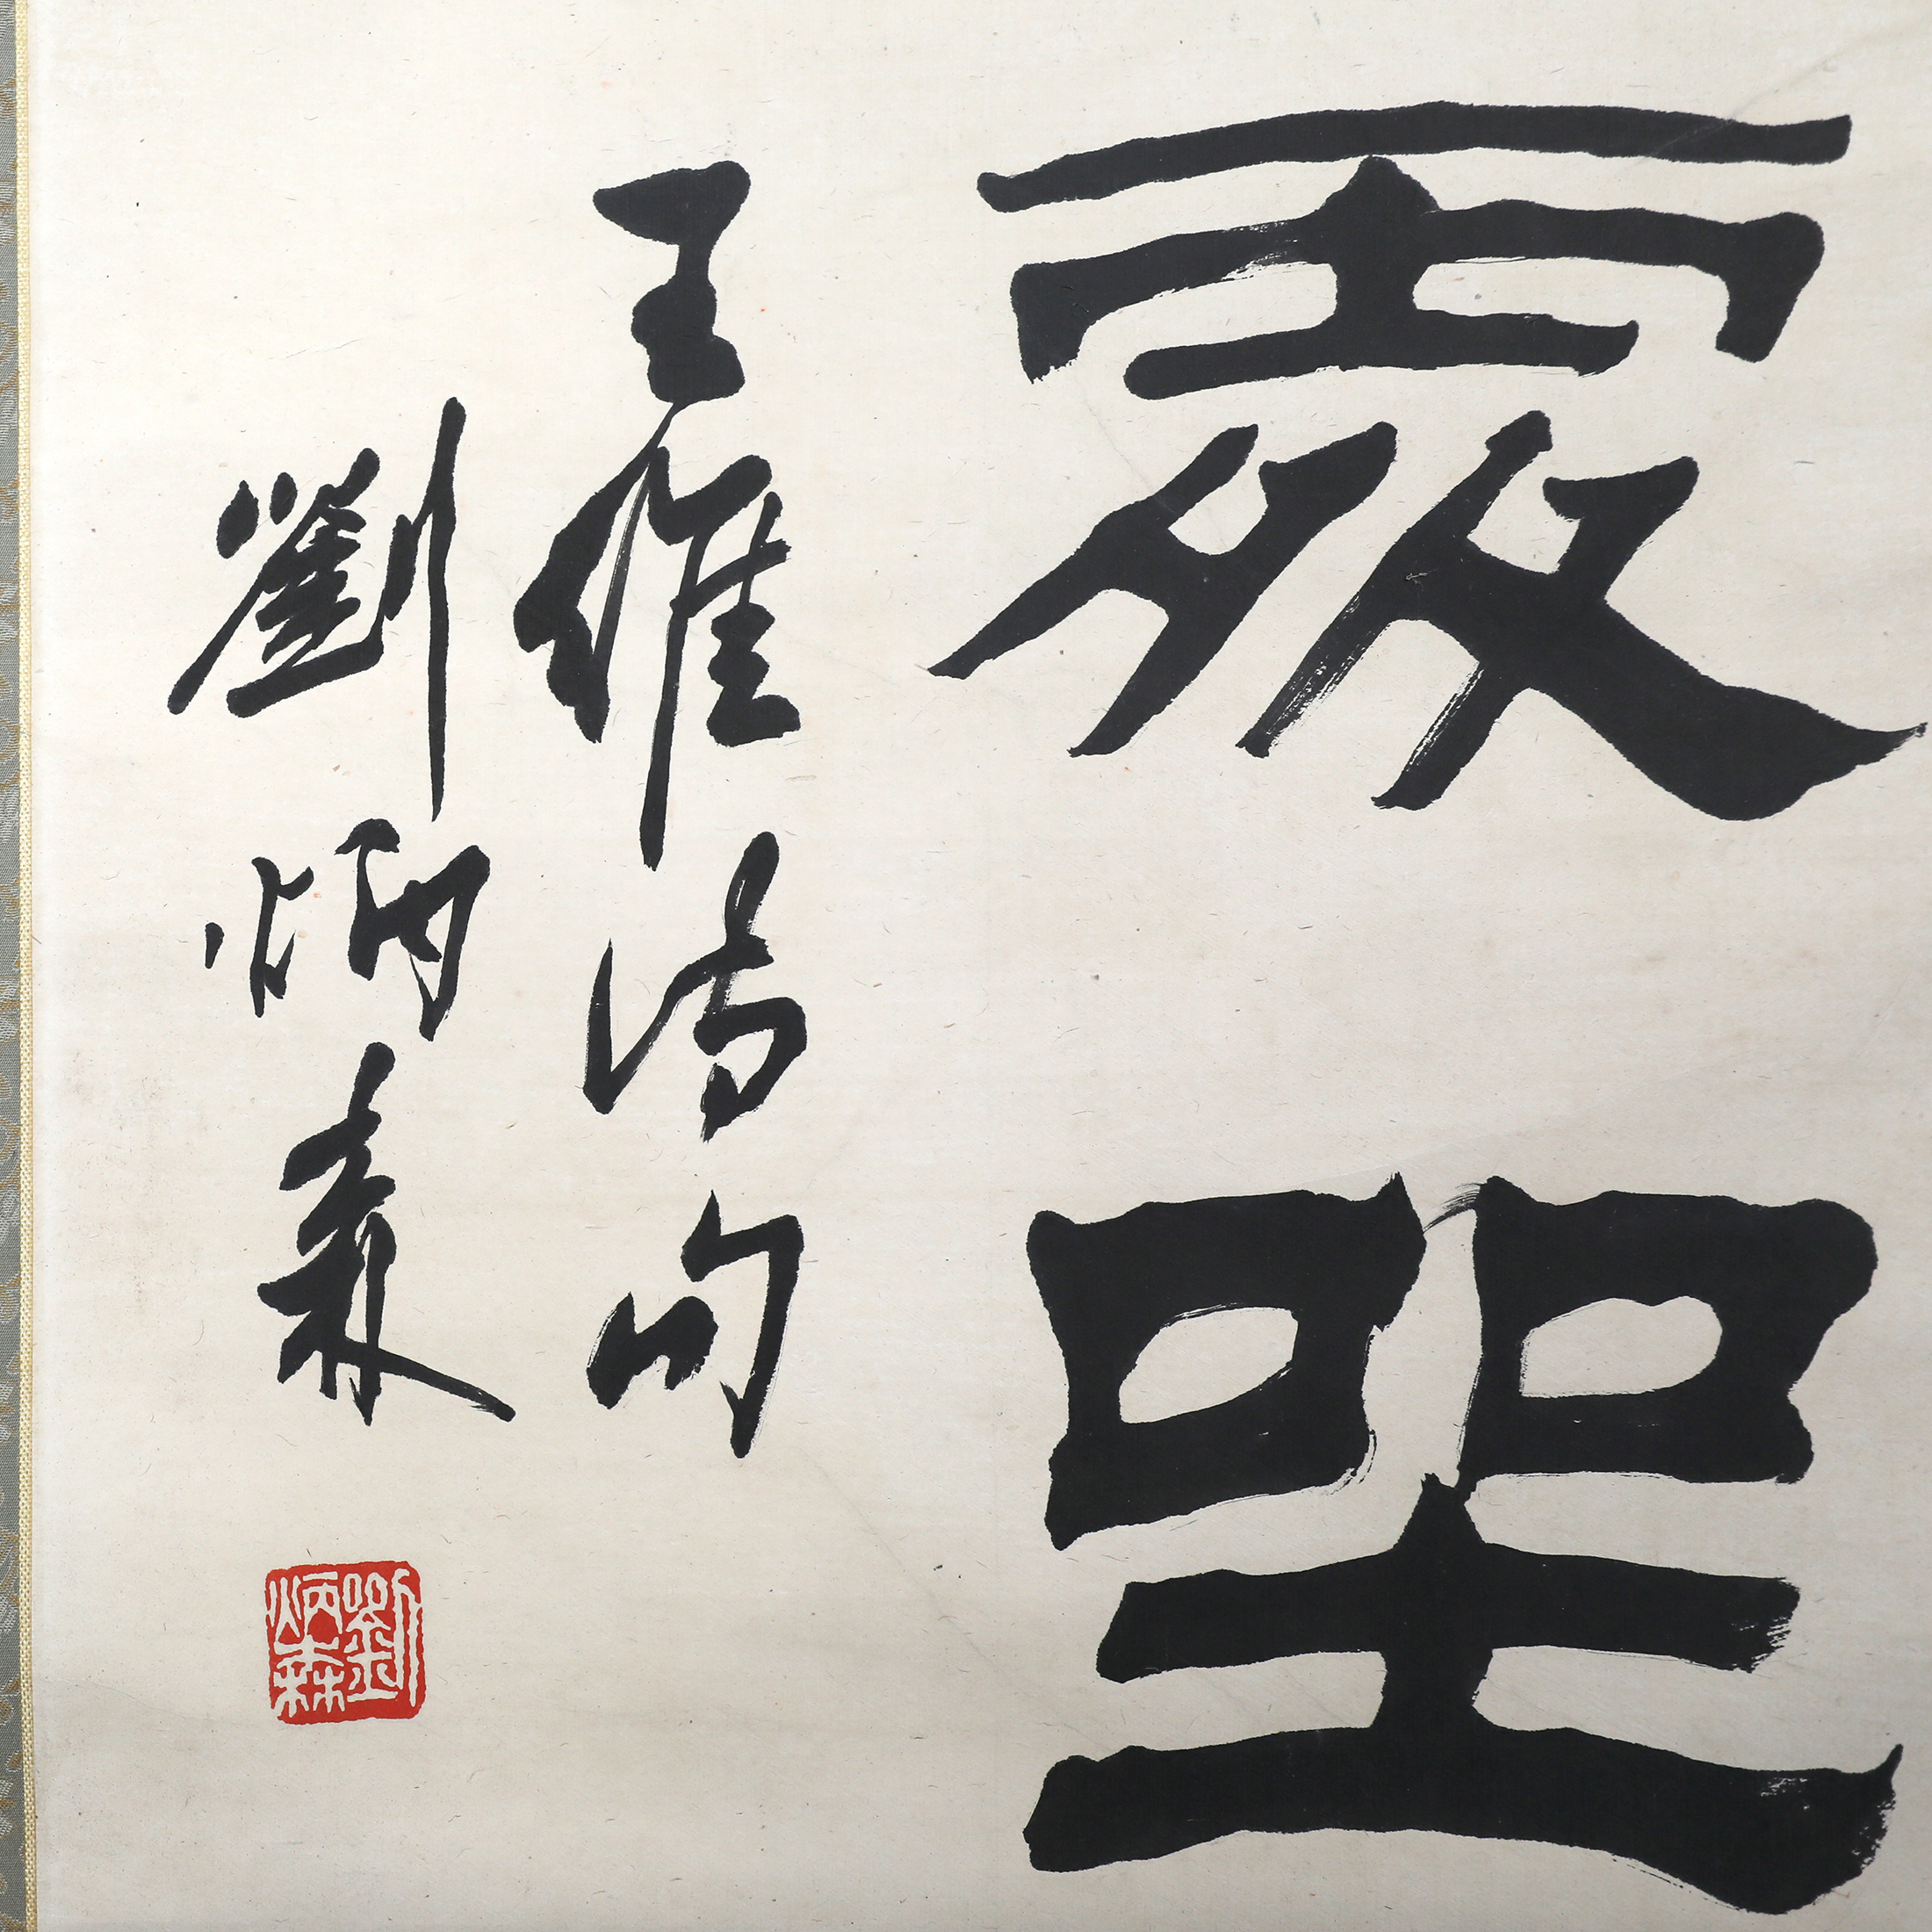 處坐
王維詩句
劉炳森
劉炳森